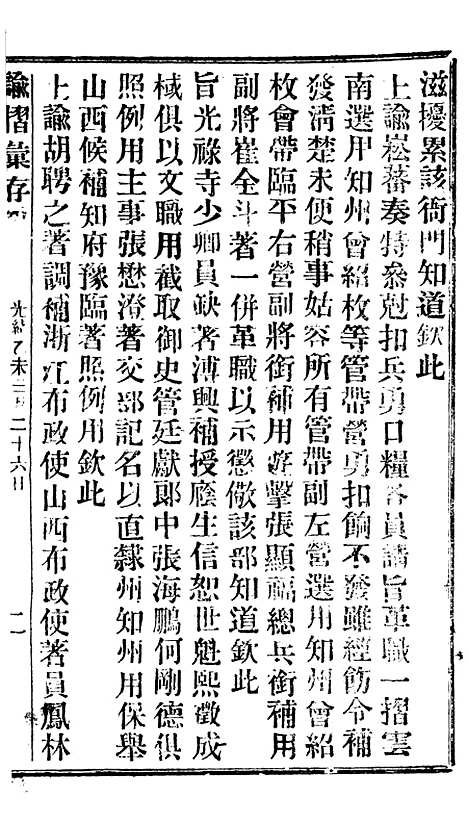 滋擾累該衙門知道欽此
上諭崧蕃奏特叅尅扣兵勇口糧各員請旨革職一摺雲
南選用知州曾紹枚等管帶營勇扣餉不發雖經飭令補
發清楚未便稍事姑容所有管帶副左營選用知州曾紹
枚會帶臨平右營副將銜補用遊擊張顯福總兵銜補用
副將崔全斗著一併革職以示懲儆該部知道欽此
旨光祿寺少卿員缺著溥興補授廕生信恕世魁熙徵成
棫俱以文職用截取御史管廷獻郎中張海鵬何剛德俱
照例用主事張懋澄著交部記名以直隸州知州用保舉
山西候補知府豫臨著照例用欽此
上諭胡聘之著調補浙江布政使山西布政使著員鳳林
諭摺彙存
光緒乙未三月二十六日
二